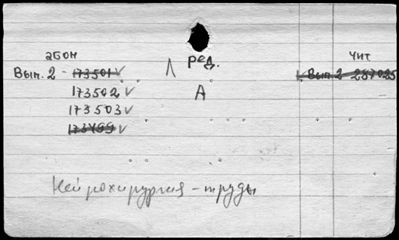 абон ред. чит
Вып. 2 - 173501 V Л Вып. 2 257025
173502 V А
173503 V
173499 V
Нейрохирургия - труды